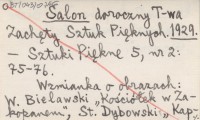 Salon doroczny T-wa
Zachęty Sztuk Pięknych. 1929.
— Sztuki Piękne 5, nr 2:
75-76.
Wzmianka o obrazach:
W. Bielawski „Kościółek w Za-
kopanem", St. Dybowski „Kap-